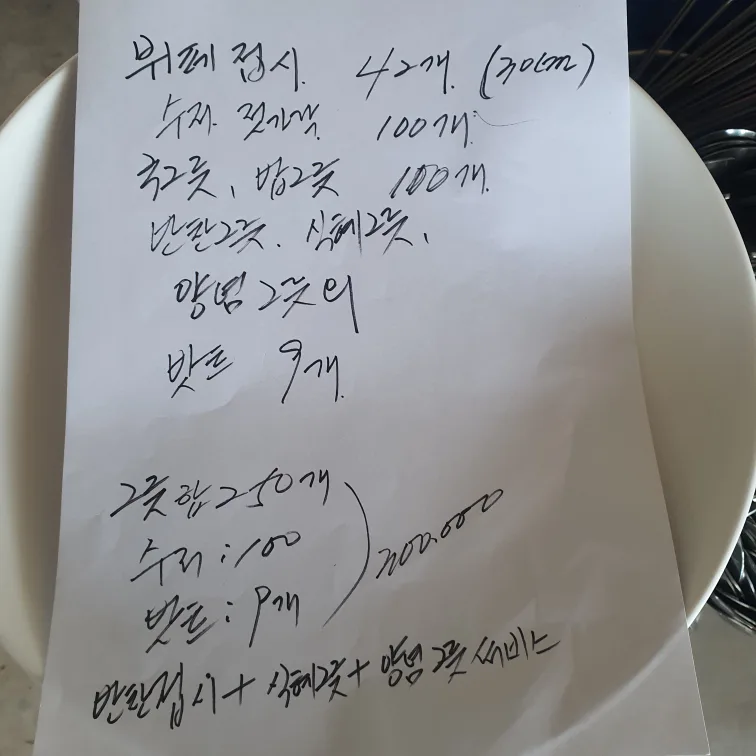 뷔페 접시. 42개. (30cm)
수저. 젓가락 100개.
국그릇, 밥그릇 100개.
반찬그릇. 식혜그릇,
양념 그릇 외
밧트 9개.
그릇합 250개
수저 : 100
밧트 : 9개
200.000
반찬접시 + 식혜그릇 + 양념그릇 써비스